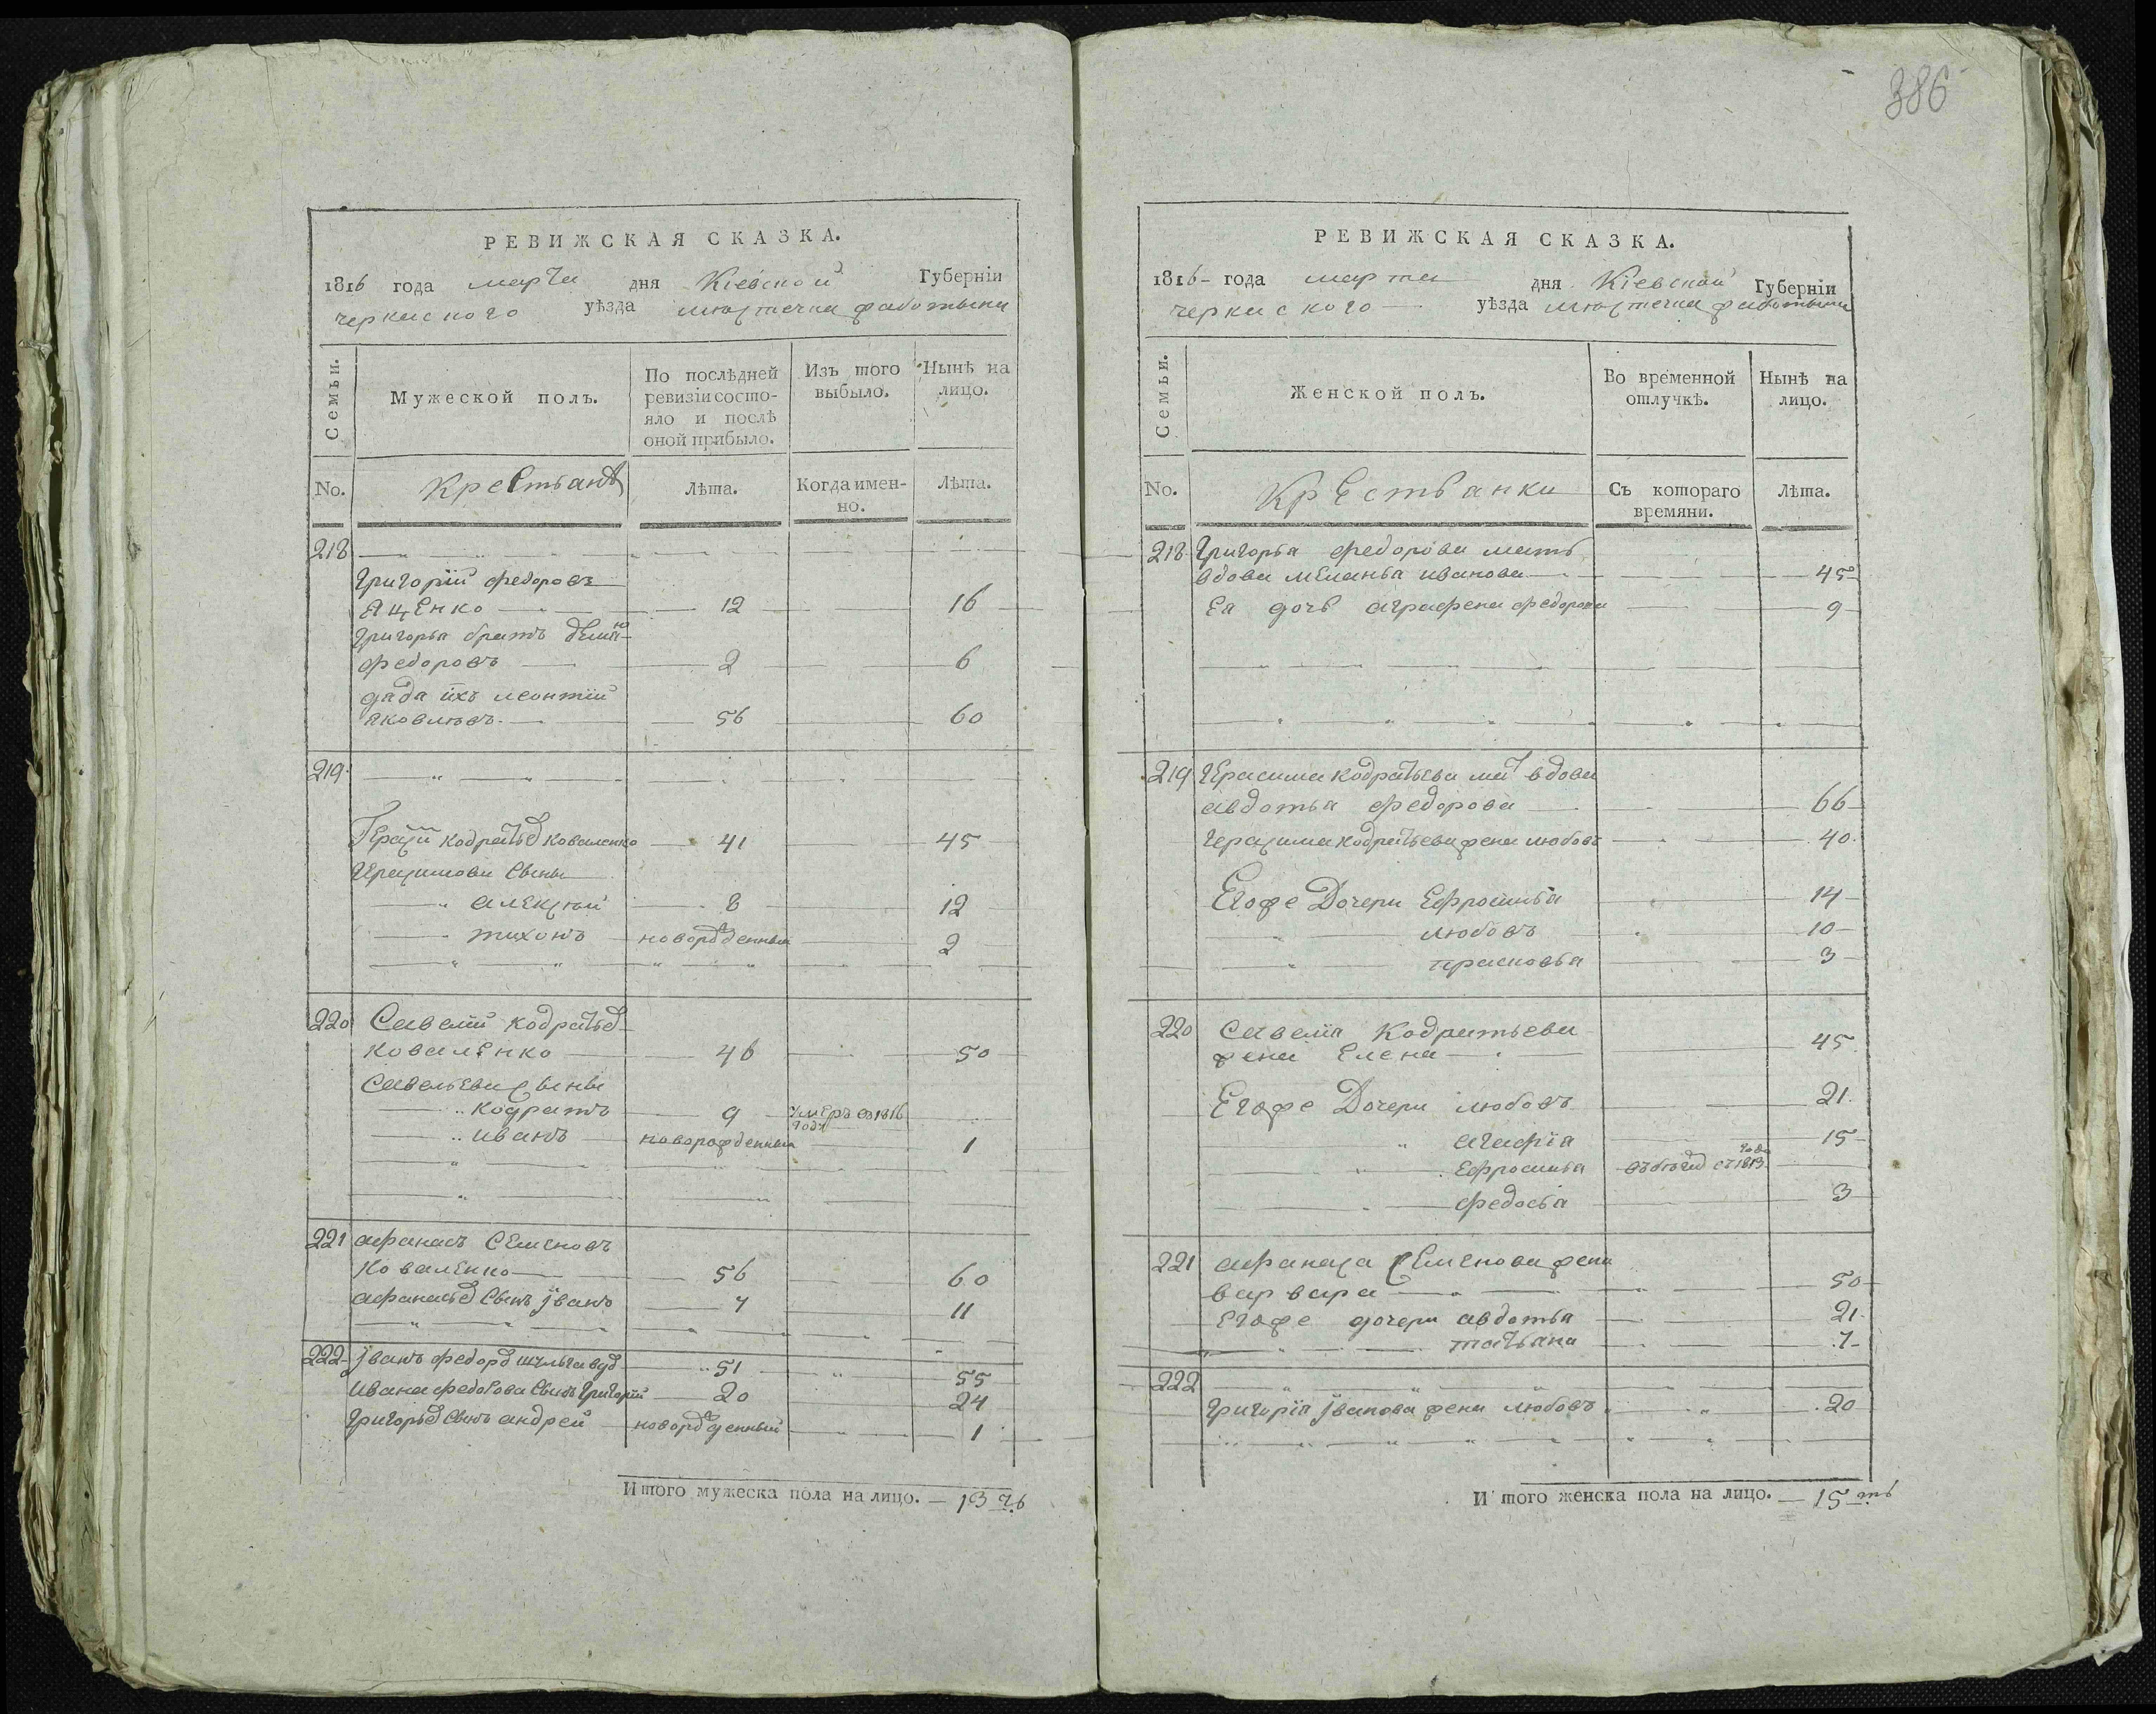 386
РЕВИЖСКАЯ СКАЗКА.
1816 года марта дня Кіевской Губерніи
черкаского уѣзда мюстечка
Семьи.
Мужеской полъ.
По послѣдней ревизіи состояло и послѣ оной прибыло.
Изъ того выбыло.
Нынѣ на лицо.
No.
Крестьанѣ
Лѣта.
Когда именно.
Лѣта.
218
Григорій федоровъ
Яценко 12 16
Григорья братъ
федоровъ 2 6
дядя ихъ леонтій
яковлювъ 56 60
219
кодратьев коваленко 41 45
Герасимови Сыны
алексѣй 8 12
тихонъ новорожденный 2
220 Савелій кодратьев
коваленко 46 50
Савельеви сыны
кодратъ 9 умеръ въ 1816 году
иванъ новорожденный 1
221 афанасъ Семеновъ
коваленко 56 60
афанасьев Сынъ Јванъ 7 11
222 Јванъ федоров 51 55
Ивана федорова Сынъ Григорій 20 24
Григорьев Сынъ андрей новорожденный 1
Итого мужеска пола на лицо. 13 ть
РЕВИЖСКАЯ СКАЗКА.
1816 года марта дня Кіевской Губерніи
черкаского уѣзда мюстечка
Семьи.
Женской полъ.
Во временной отлучкѣ.
Нынѣ на лицо.
No.
Крестьанки
Съ котораго времяни.
Лѣта.
218 Григорья федорова мать
вдова меланья иванова 45
Ея дочь аграфена федорова 9
219 Герасима кодратьева мат вдова
авдотья федорова 66
Герасима кодратьева жена любовъ 40
Егоже Дочери Ефросинья 14
любовъ 10
прасковья 3
220 Савелія Кодратьева
жена Елена 45
Егоже Дочери любовъ 21
агафіа 15
Ефросинья въ бѣгах съ 1813 года
федосья 3
221 афанаса Семенова жена
варвара 50
Егоже дочери авдотья 21
татьана 7
222
Григоріа Јванова жена любовъ 20
Итого женска пола на лицо. 15 ть